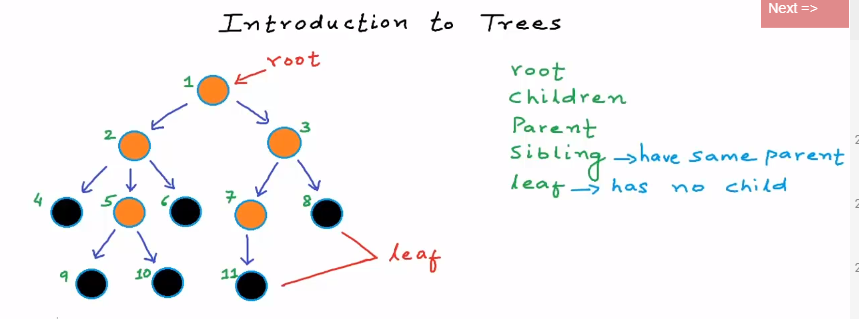 Next =>
Introduction to Trees
root
1
2
3
4
5
6
7
8
9
10
11
leaf
root
Children
Parent
Sibling → have same parent
leaf → has no child